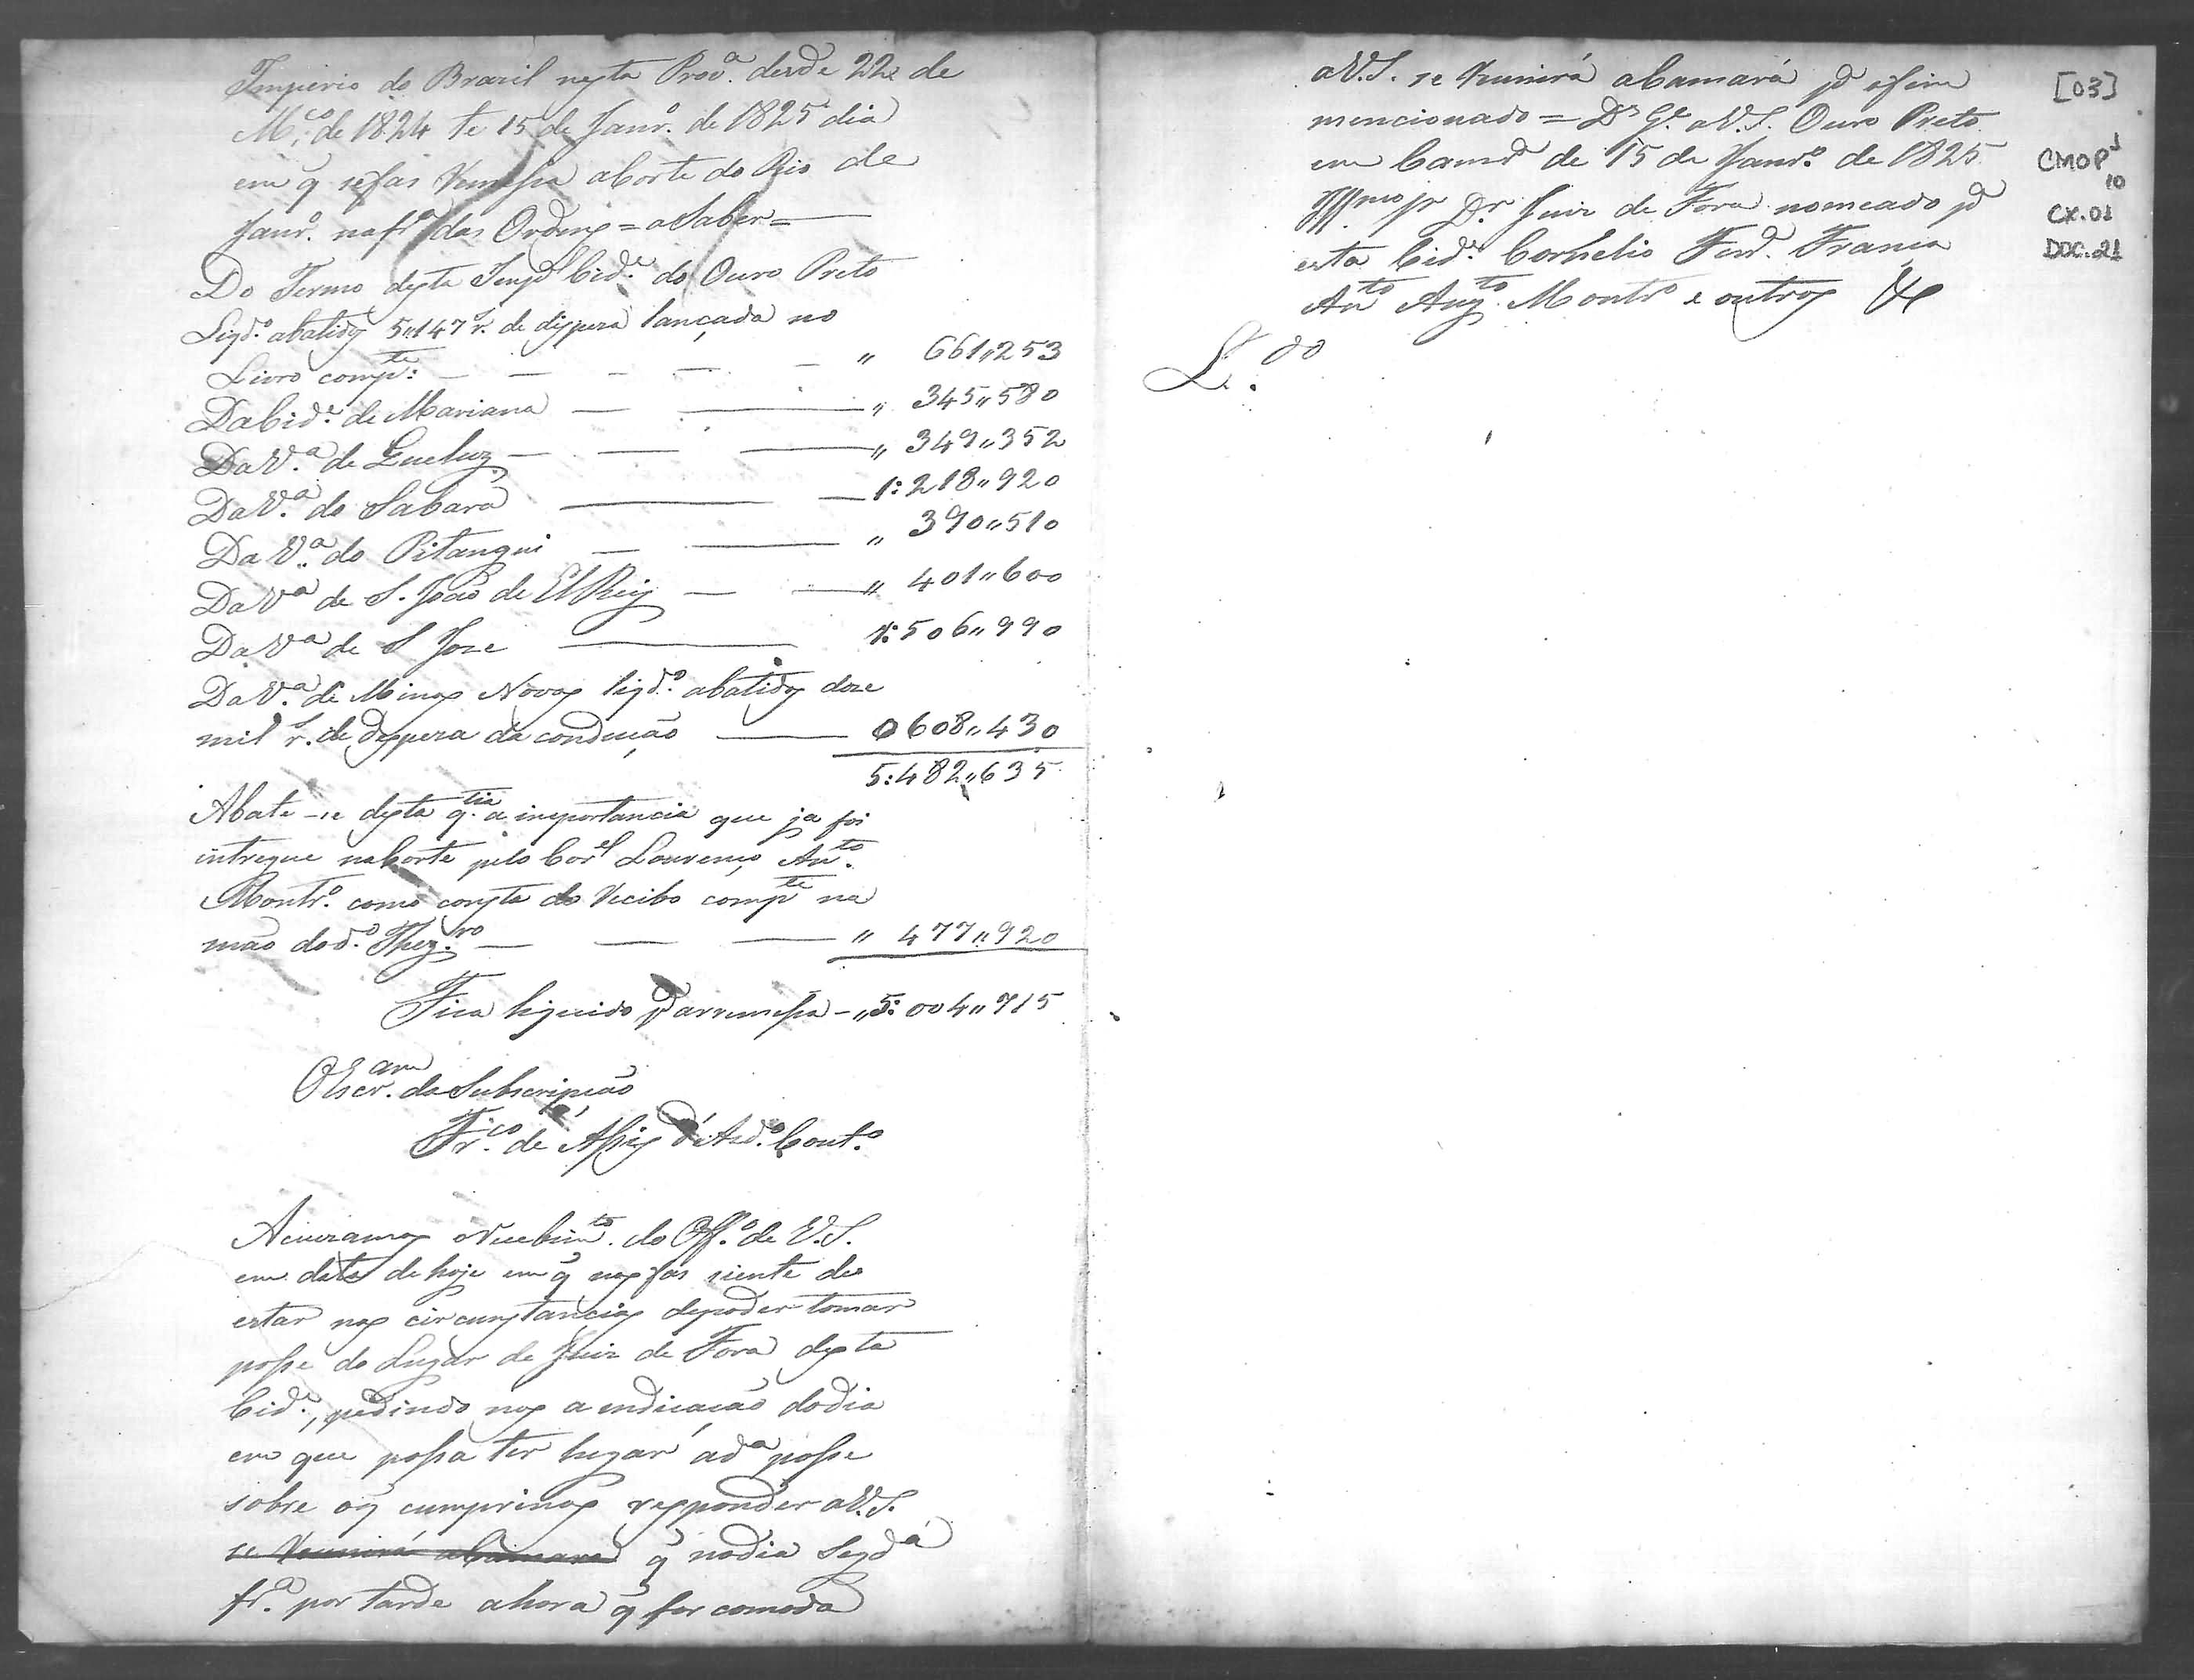 Imperio do Brazil nesta Prov.ª desde 22 de
M.ço de 1824 te 15 de Janr.º de 1825 dia
em q̃ se fas Remessa a Corte do Rio de
Janr.º na fr.ª das Ordens = a Saber =
Do Termo desta Imp.l Cid.e do Ouro Preto
Liqd.º abatidos 5,,147 r.s de dispeza lançada no
Livro comp.te: — — — — — ,, 661,,253
Da Cid.e de Mariana — — ,, 345,,580
Da V.ª de Queluz — — — ,, 349,,352
Da V.ª do Sabará — — 1:218,,920
Da V.ª do Pitangui — — ,, 390,,510
Da V.ª de S. João de El Rey — — ,, 401,,600
Da V.ª de S Joze — 1:506,,990
Da V.ª de Minas Novas liqd.º abatidos doze
mil r.s de despeza da condução — 0608,,430
5:482,,635
Abate-se desta q.tia a importancia que ja foi
intregue na Corte pelo Cor.el Lourenço An.to
Montr.º como consta do Recibo comp.te na
mão do d.º Thez.ro — — — ,, 477,,920
Fica liquido p.ª a rremessa - ,, 5:004,,715
O Escr.am da Subscripção
Fr.co de Assis d'Azd.º Cout.º
Acuzamos o Recebim.to do Off.º de V.S.
em data de hoje em q̃ nos fas siente de
estar nas circunstancias de poder tomar
posse do Lugar de Juiz de Fora desta
Cid.e, pedindo nos a indicação do dia
em que possa ter lugar a d.ª posse
sobre o q̃ cumprinos responder a V.S.
se Reunirá a Camara q̃ no dia Segd.ª
fr.ª por tarde a hora q̃ for comoda
a V.S. se Reunirá a Camará p.ª o fim
mencionado = D.s G.e a V.S. Ouro Preto
em Camr.ª de 15 de Janr.º de 1825
Ill.mo Sr. D.r Juiz de Fora nomeado p.ª
esta Cid.e Cornelio Ferr.ª França
An.to Aug.to Montr.º e outros &
L.do
[03]
CMOP J
10
CX.01
DOC.21